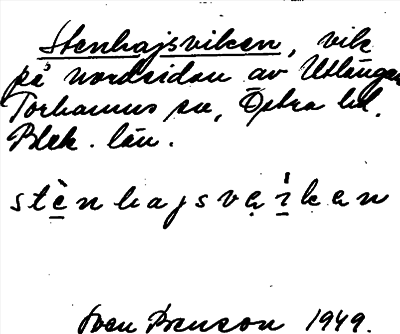 Stenhajsviken, vik
på nordsidan av Utlängan
Torhamns sn, Östra hd.
Blek. län.
stènhajsvḙíkan
Sven Benson 1949.